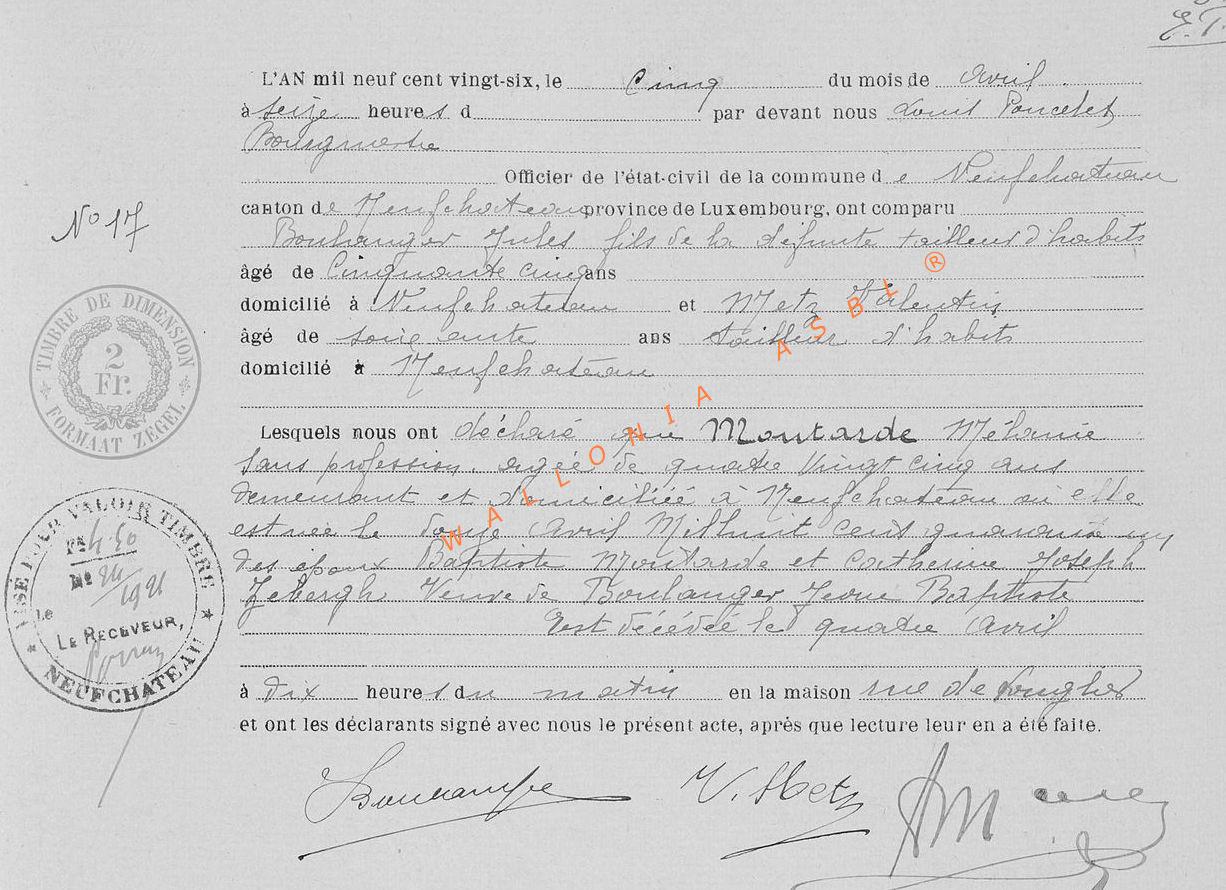 L'AN mil neuf cent vingt-six, le Cinq du mois de Avril
à seize heures d par devant nous Louis Poncelet
Bourgmestre
Officier de l'état-civil de la commune de Neufchateau
canton de Neufchateau province de Luxembourg, ont comparu
N° 17
Boulanger Jules fils de la défunte tailleur d'habits
âgé de Cinquante cinq ans
domicilié à Neufchateau et Metz Valentin
âgé de soixante ans tailleur d'habits
domicilié à Neufchateau
TIMBRE DE DIMENSION
2
Fr.
FORMAAT ZEGEL
WALLONIA ASBL ®
Lesquels nous ont déclaré que Moutarde Mélanie
sans profession, agée de quatre Vingt cinq ans
demeurant et domiciliée à Neufchateau où elle
est née le douze Avril Mil huit cent quarante un
des époux Baptiste Moutarde et Catherine Joseph
Veuve de Boulanger Baptiste
Est décédée le quatre Avril
VISÉ POUR VALOIR TIMBRE
Fr. 4.50
N°
Le
LE RECEVEUR,
NEUFCHATEAU
à dix heures du matin en la maison rue de
et ont les déclarants signé avec nous le présent acte, après que lecture leur en a été faite.
V. Metz